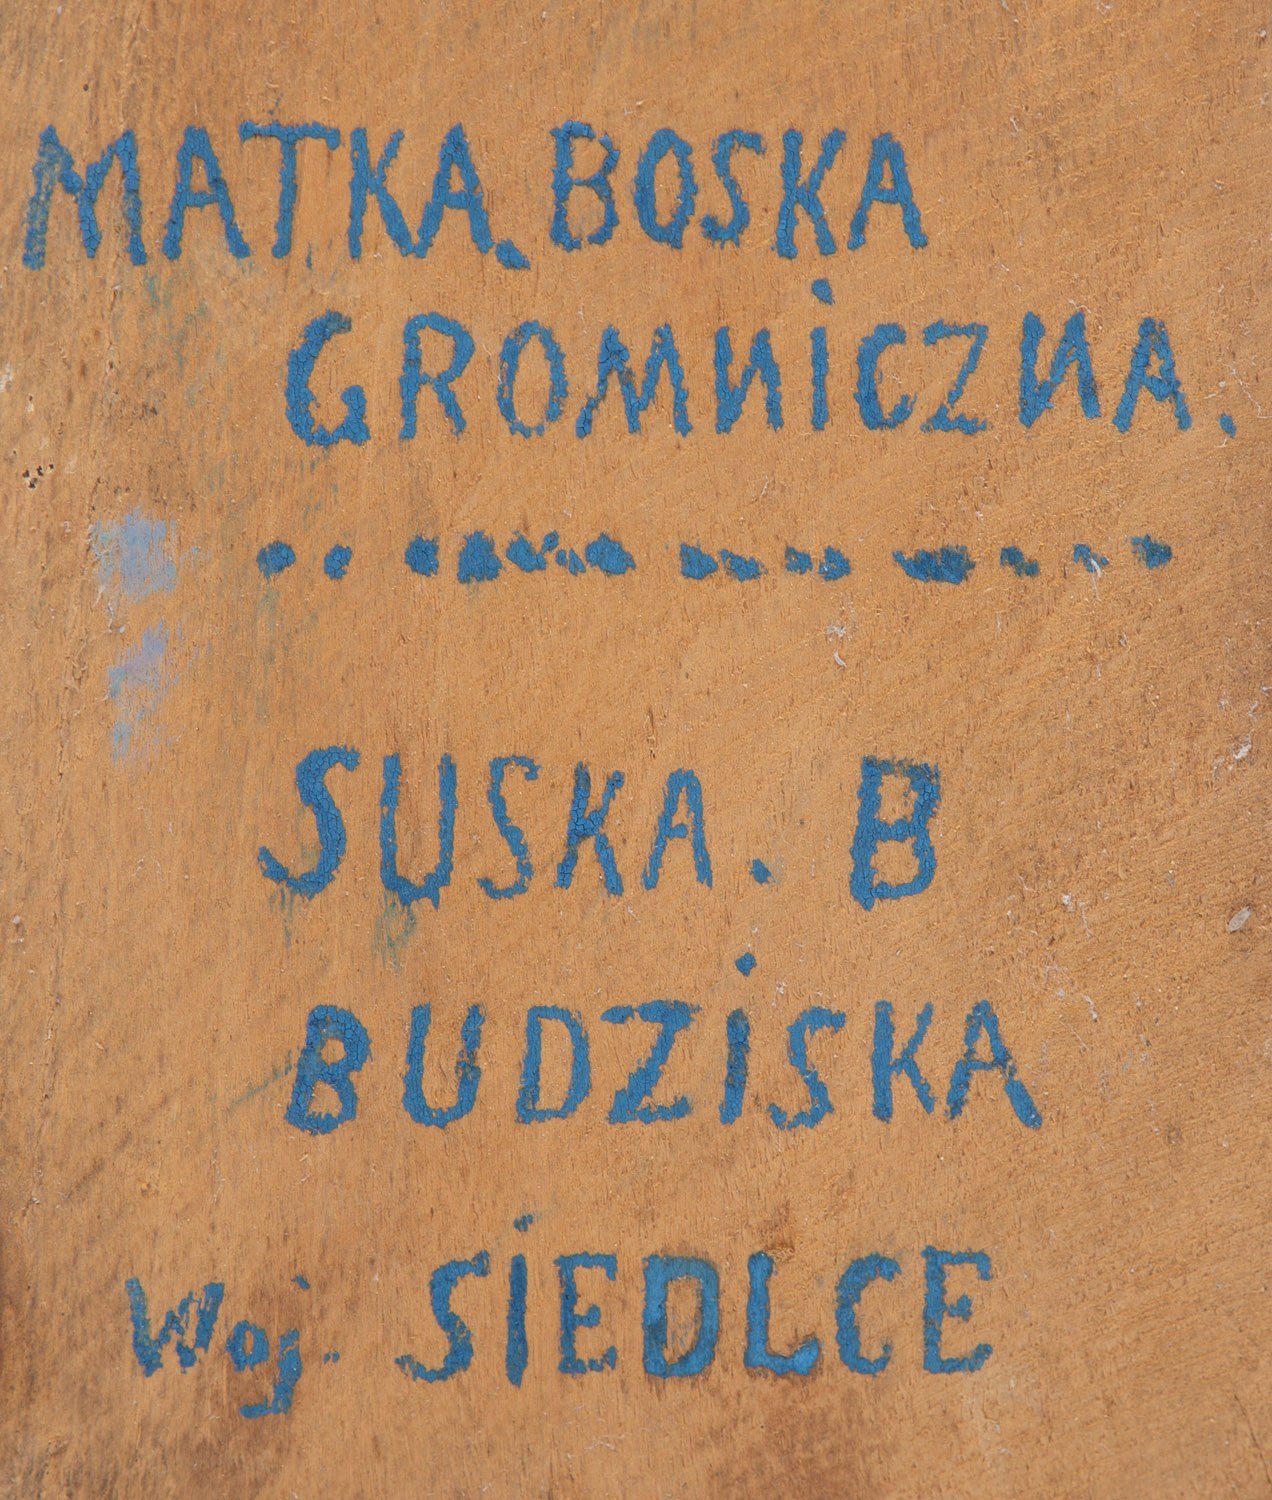 MATKA. BOSKA
GROMNICZNA.
SUSKA. B
BUDZISKA
Woj. SIEDLCE